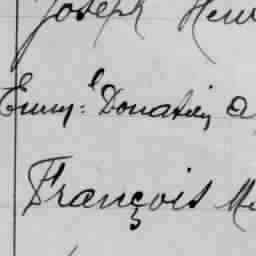 Joseph Hen
Emm:l Donatien a
François Me